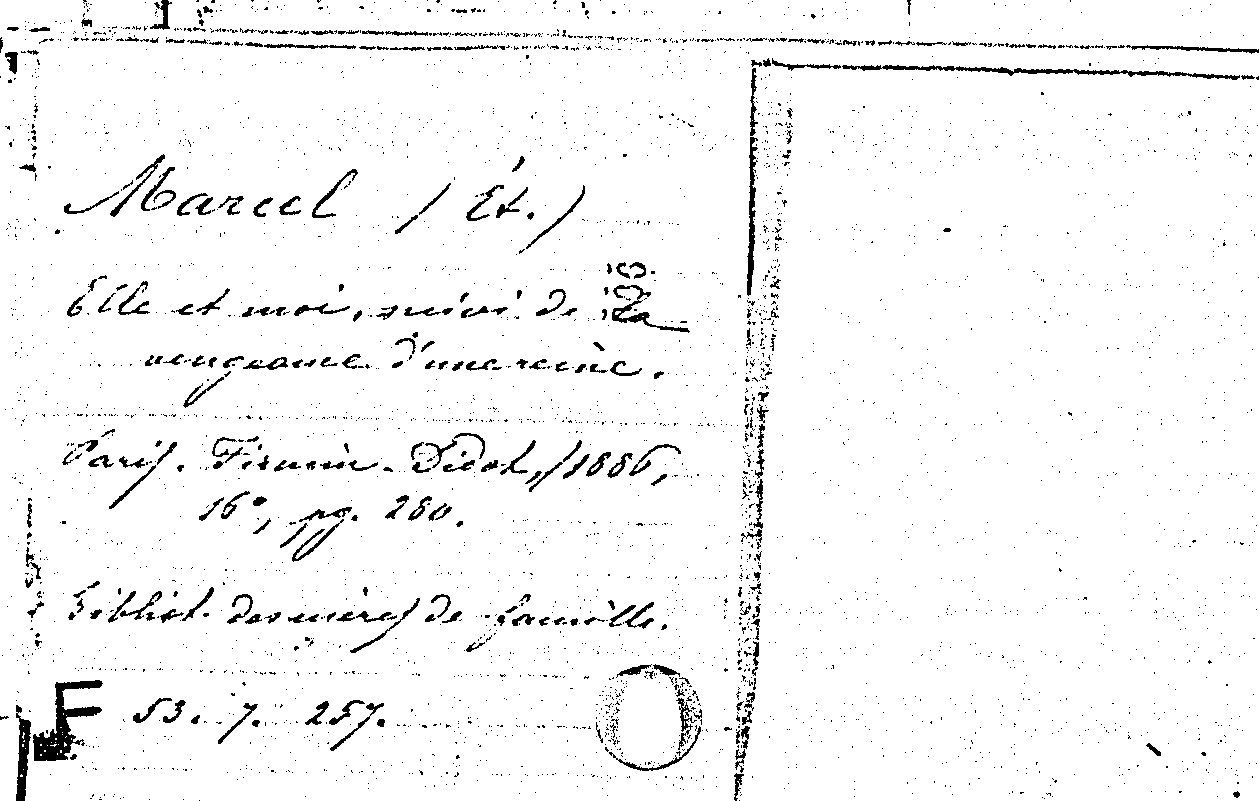 Marcel (Ét.)
Elle et moi, suivi de La
vengeance d'une reine.
Paris. Firmin-Didot, 1886,
16°, pg. 280.
Bibliot. des mères de famille.
F 53. 7. 257.